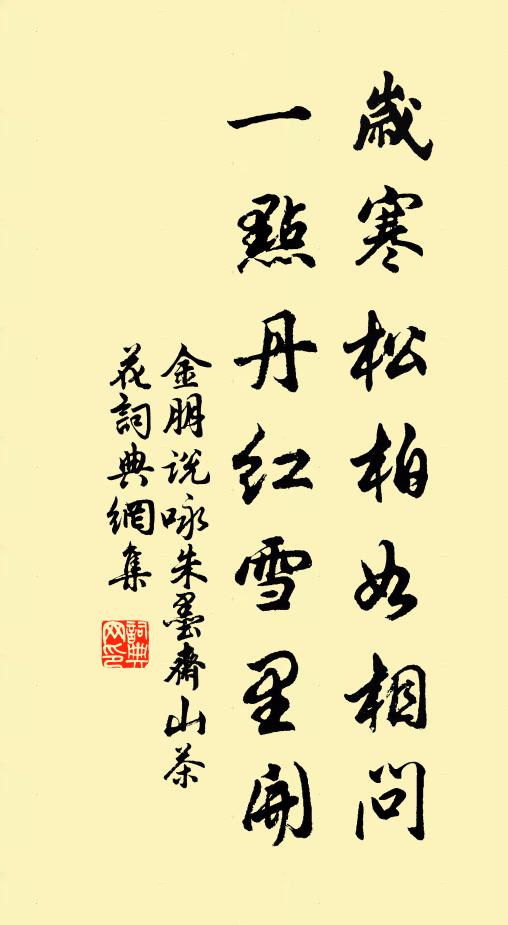 歲寒松柏如相問
一點丹紅雪里開
金朋说咏朱墨齋山茶
花詞典網集
詞典
网印